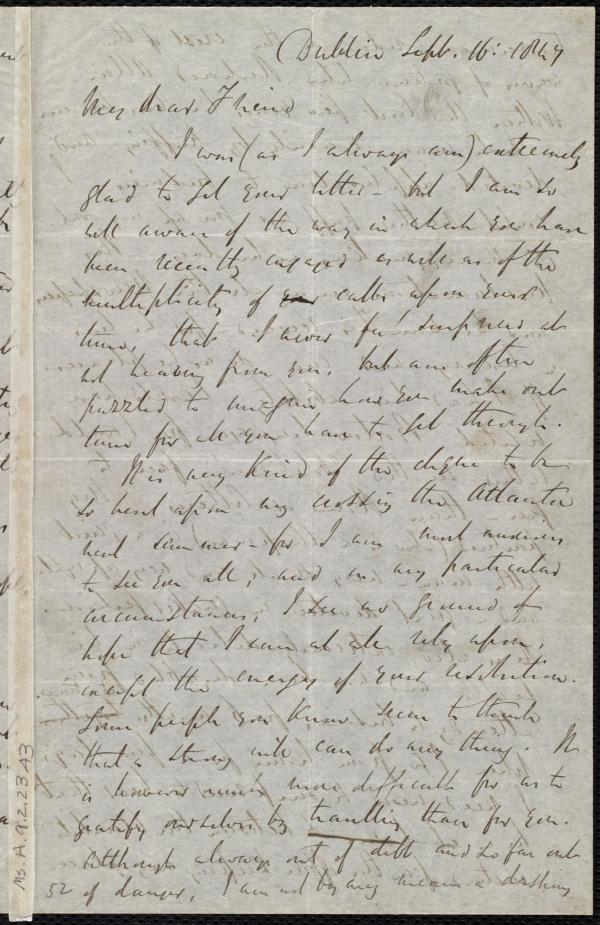 Dublin Sept. 16: 1847
My dear Friend
I was (as I always am) extremely
glad to get your letter - but I am so
well aware of the way in which you have
been recently engaged as well as of the
multiplicity of calls upon your
time, that I never feel surprised at
not hearing from you, but am often
puzzled to imagine how you make out
time for all you have to get through.
It is very kind of the clique to be
so bent upon my crossing the Atlantic
next summer - for I am most anxious
to see you all, and in my particular
circumstances, I see no ground of
hope that I can at all rely upon,
except the energy of your resolution.
Some people you know seem to think
that a strong will can do any thing. It
is however much more difficult for us to
gratify ourselves by travelling than for you.
Although always out of debt and so far out
of danger, I am not by any means a dashing
52
Ms. A. 9. 2. 23 A3